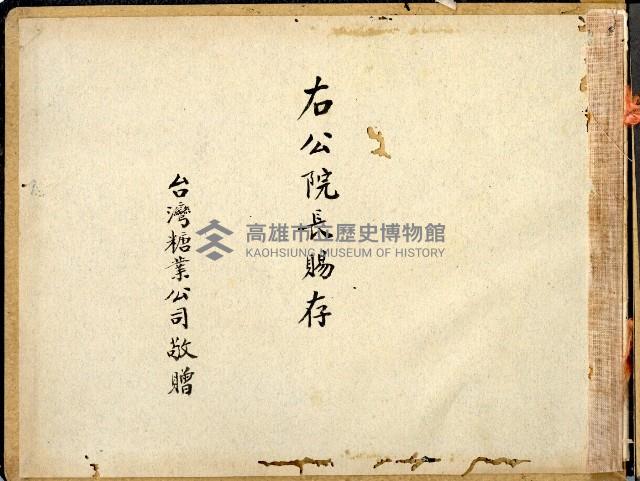 右公院長賜存
台灣糖業公司敬贈
高雄市立歷史博物館
KAOHSIUNG MUSEUM OF HISTORY